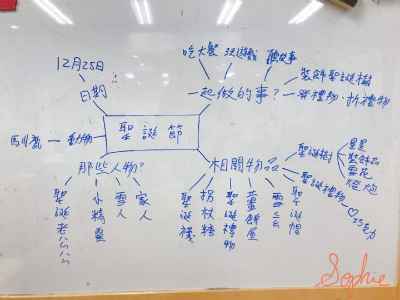 12月25日
日期
吃大餐 玩遊戲 聽故事
一起做的事?
裝飾聖誕樹
拆禮物
聖誕節
馴鹿 動物
那些人物?
聖誕老公公
小精靈
雪人
家人
相關物品
聖誕樹
星星
裝飾品
雪花
燈泡
聖誕禮物
巧克力
聖誕襪
拐杖糖
聖誕禮物
薑餅屋
雪
聖誕帽
Sophie